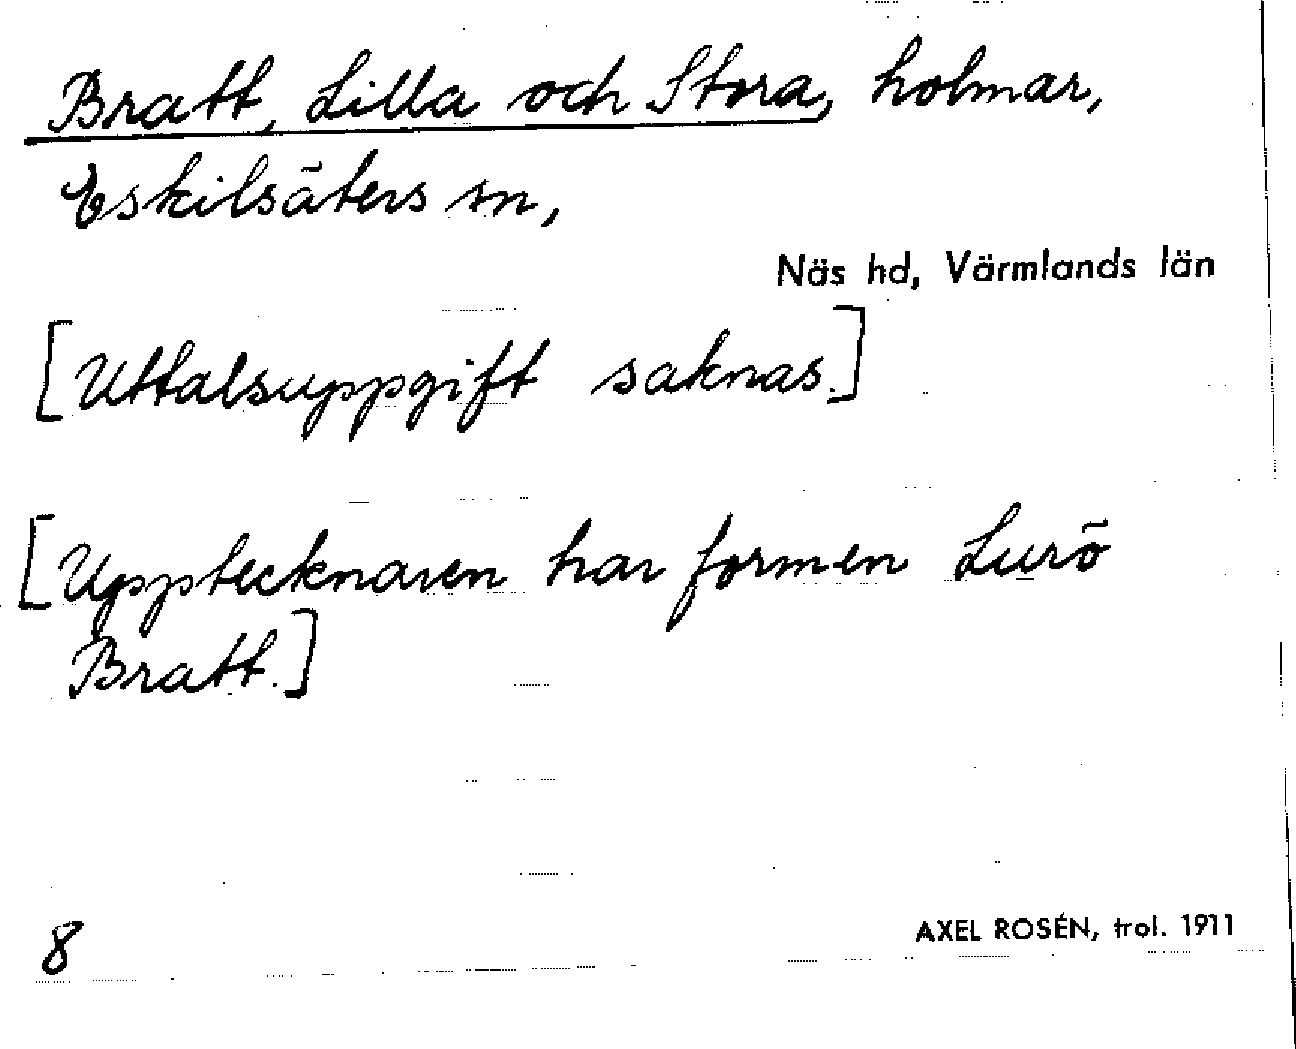 Bratt, Lilla och Stora, holmar,
Eskilsäters sn,
Näs hd, Värmlands län
[Uttalsuppgift saknas.]
[Upptecknaren har formen Lurö
Bratt.]
8
AXEL ROSÉN, trol. 1911